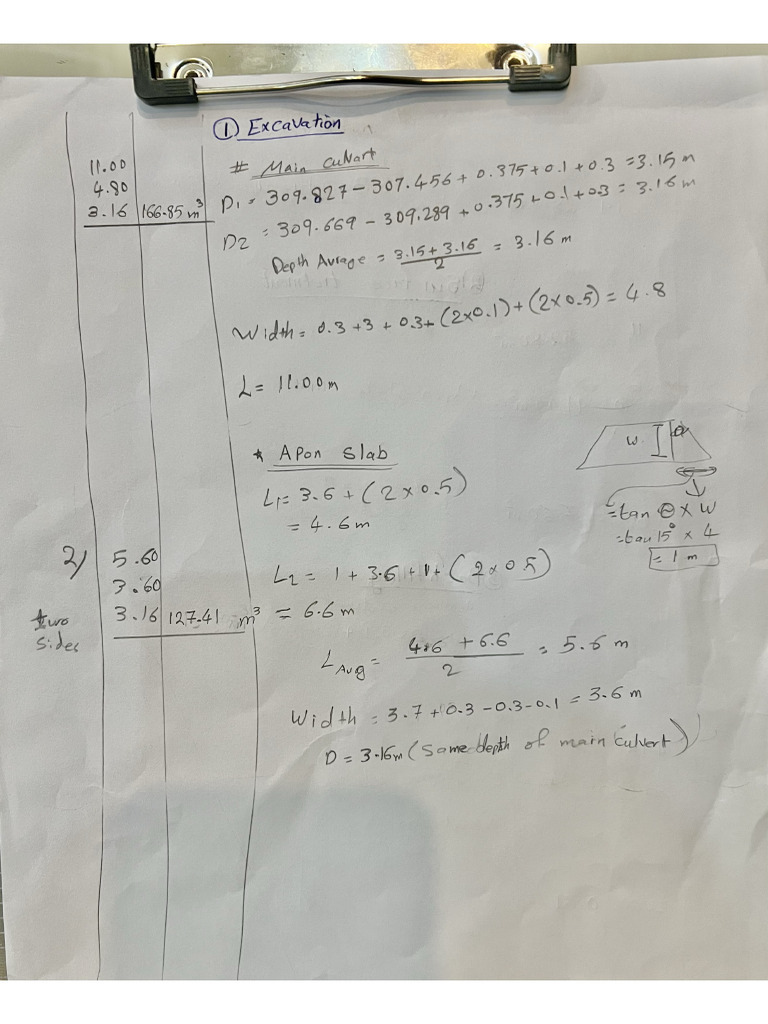 ① Excavation
11.00
4.80
3.16 166.85 m³
# Main Culvart
D1 = 309.827 – 307.456 + 0.375 + 0.1 + 0.3 = 3.15 m
D2 = 309.669 – 309.289 + 0.375 + 0.1 + 0.3 = 3.16 m
Depth Avrage = 3.15 + 3.16 / 2 = 3.16 m
Width = 0.3 + 3 + 0.3 + (2x0.1) + (2x0.5) = 4.8
L = 11.00 m
* Apon Slab
L1 = 3.6 + (2 x 0.5)
= 4.6 m
W θ
= tan θ x W
= tan 15° x 4
= 1 m
2) 5.60
3.60
two sides 3.16 127.41 m³
L2 = 1 + 3.6 + 1 + (2 x 0.5)
= 6.6 m
L Avg = 4.6 + 6.6 / 2 = 5.6 m
Width = 3.7 + 0.3 – 0.3 – 0.1 = 3.6 m
D = 3.16m (Same depth of main culvert)